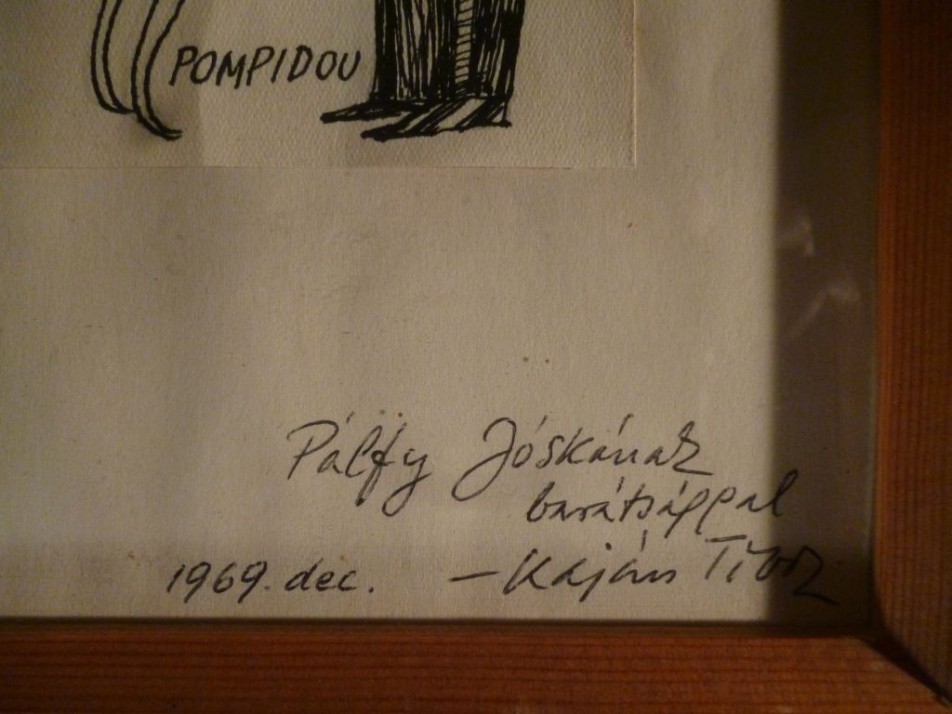 POMPIDOU
Pálfy Jóskának
barátsággal
1969. dec. – Kaján Tibor